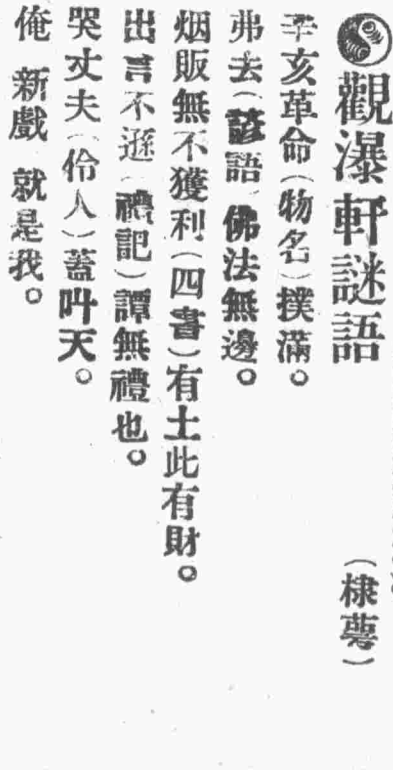 觀瀑軒謎語 （棣蕚）
辛亥革命（物名）撲滿。
弗去（諺語）佛法無邊。
烟販無不獲利（四書）有土此有財。
出言不遜（禮記）譚無禮也。
哭丈夫（伶人）蓋叫天。
俺 新戲 就是我。